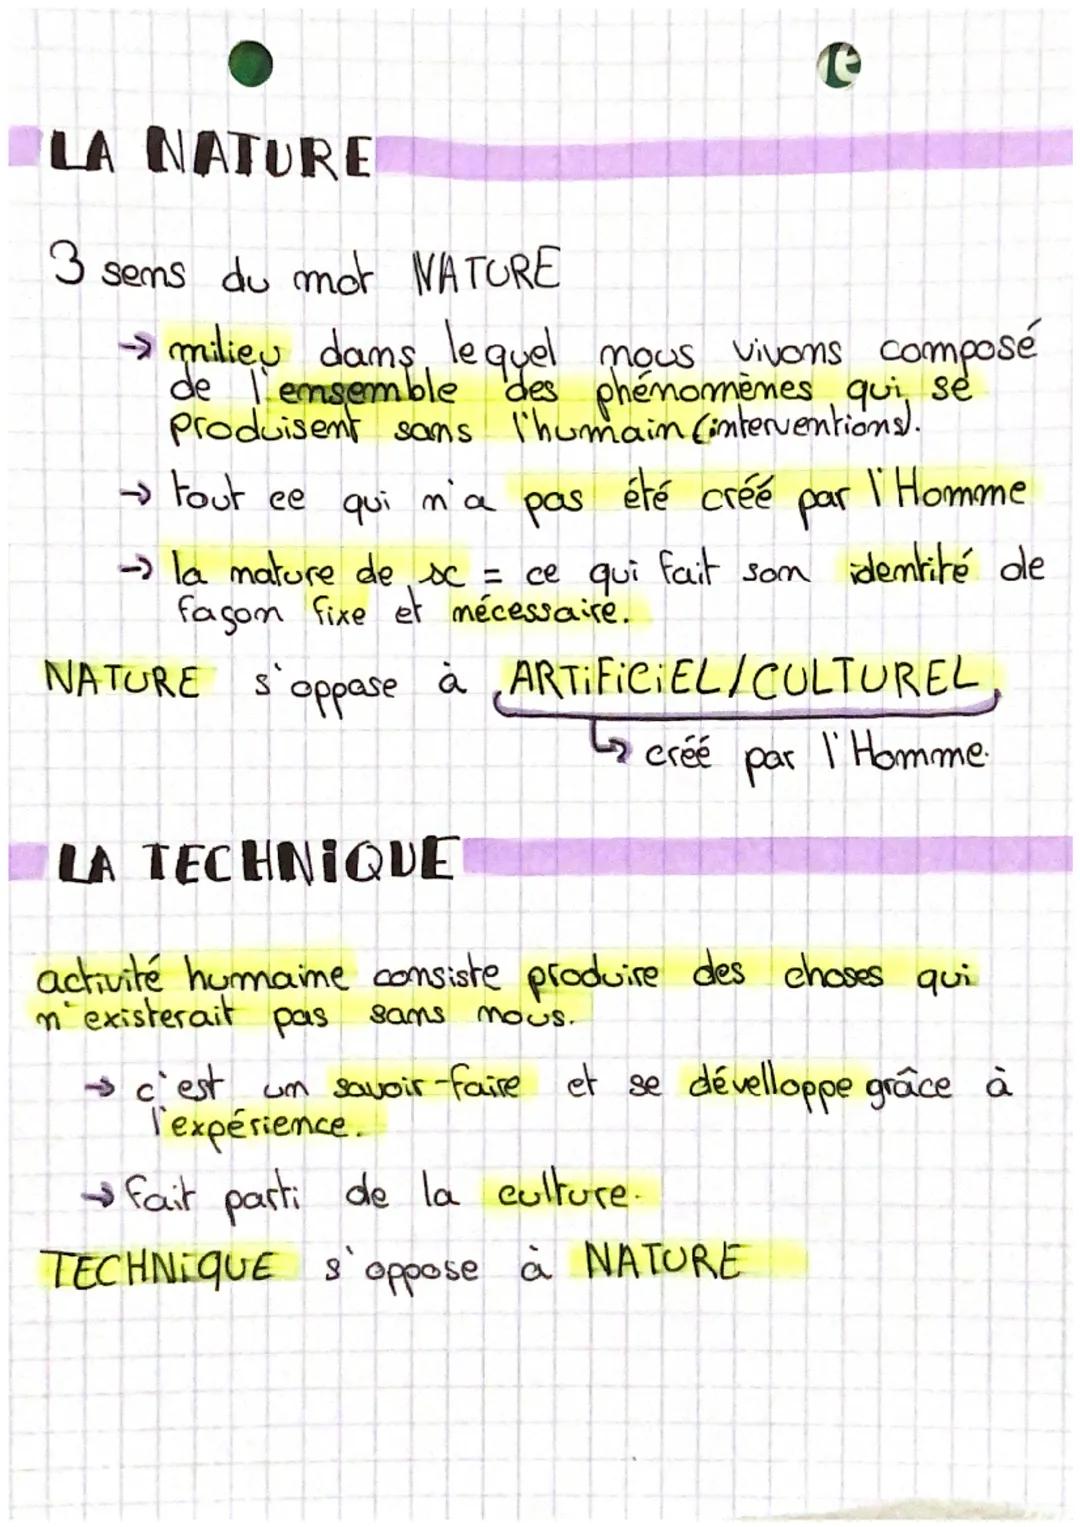 LA NATURE
3 sens du mot NATURE
→ milieu dans lequel nous vivons composé
de l'ensemble des phénomènes qui se
produisent sans l'humain (interventions).
→ tout ce qui n'a pas été créé par l'Homme
→ la nature de x = ce qui fait son identité de
façon fixe et nécessaire.
NATURE s'oppose à ARTIFICIEL/CULTUREL
↳ créé par l'Homme.
LA TECHNIQUE
activité humaine consiste produire des choses qui
n'existerait pas sans nous.
→ c'est un savoir-faire et se dévelloppe grâce à
l'expérience.
→ fait parti de la culture.
TECHNIQUE s'oppose à NATURE